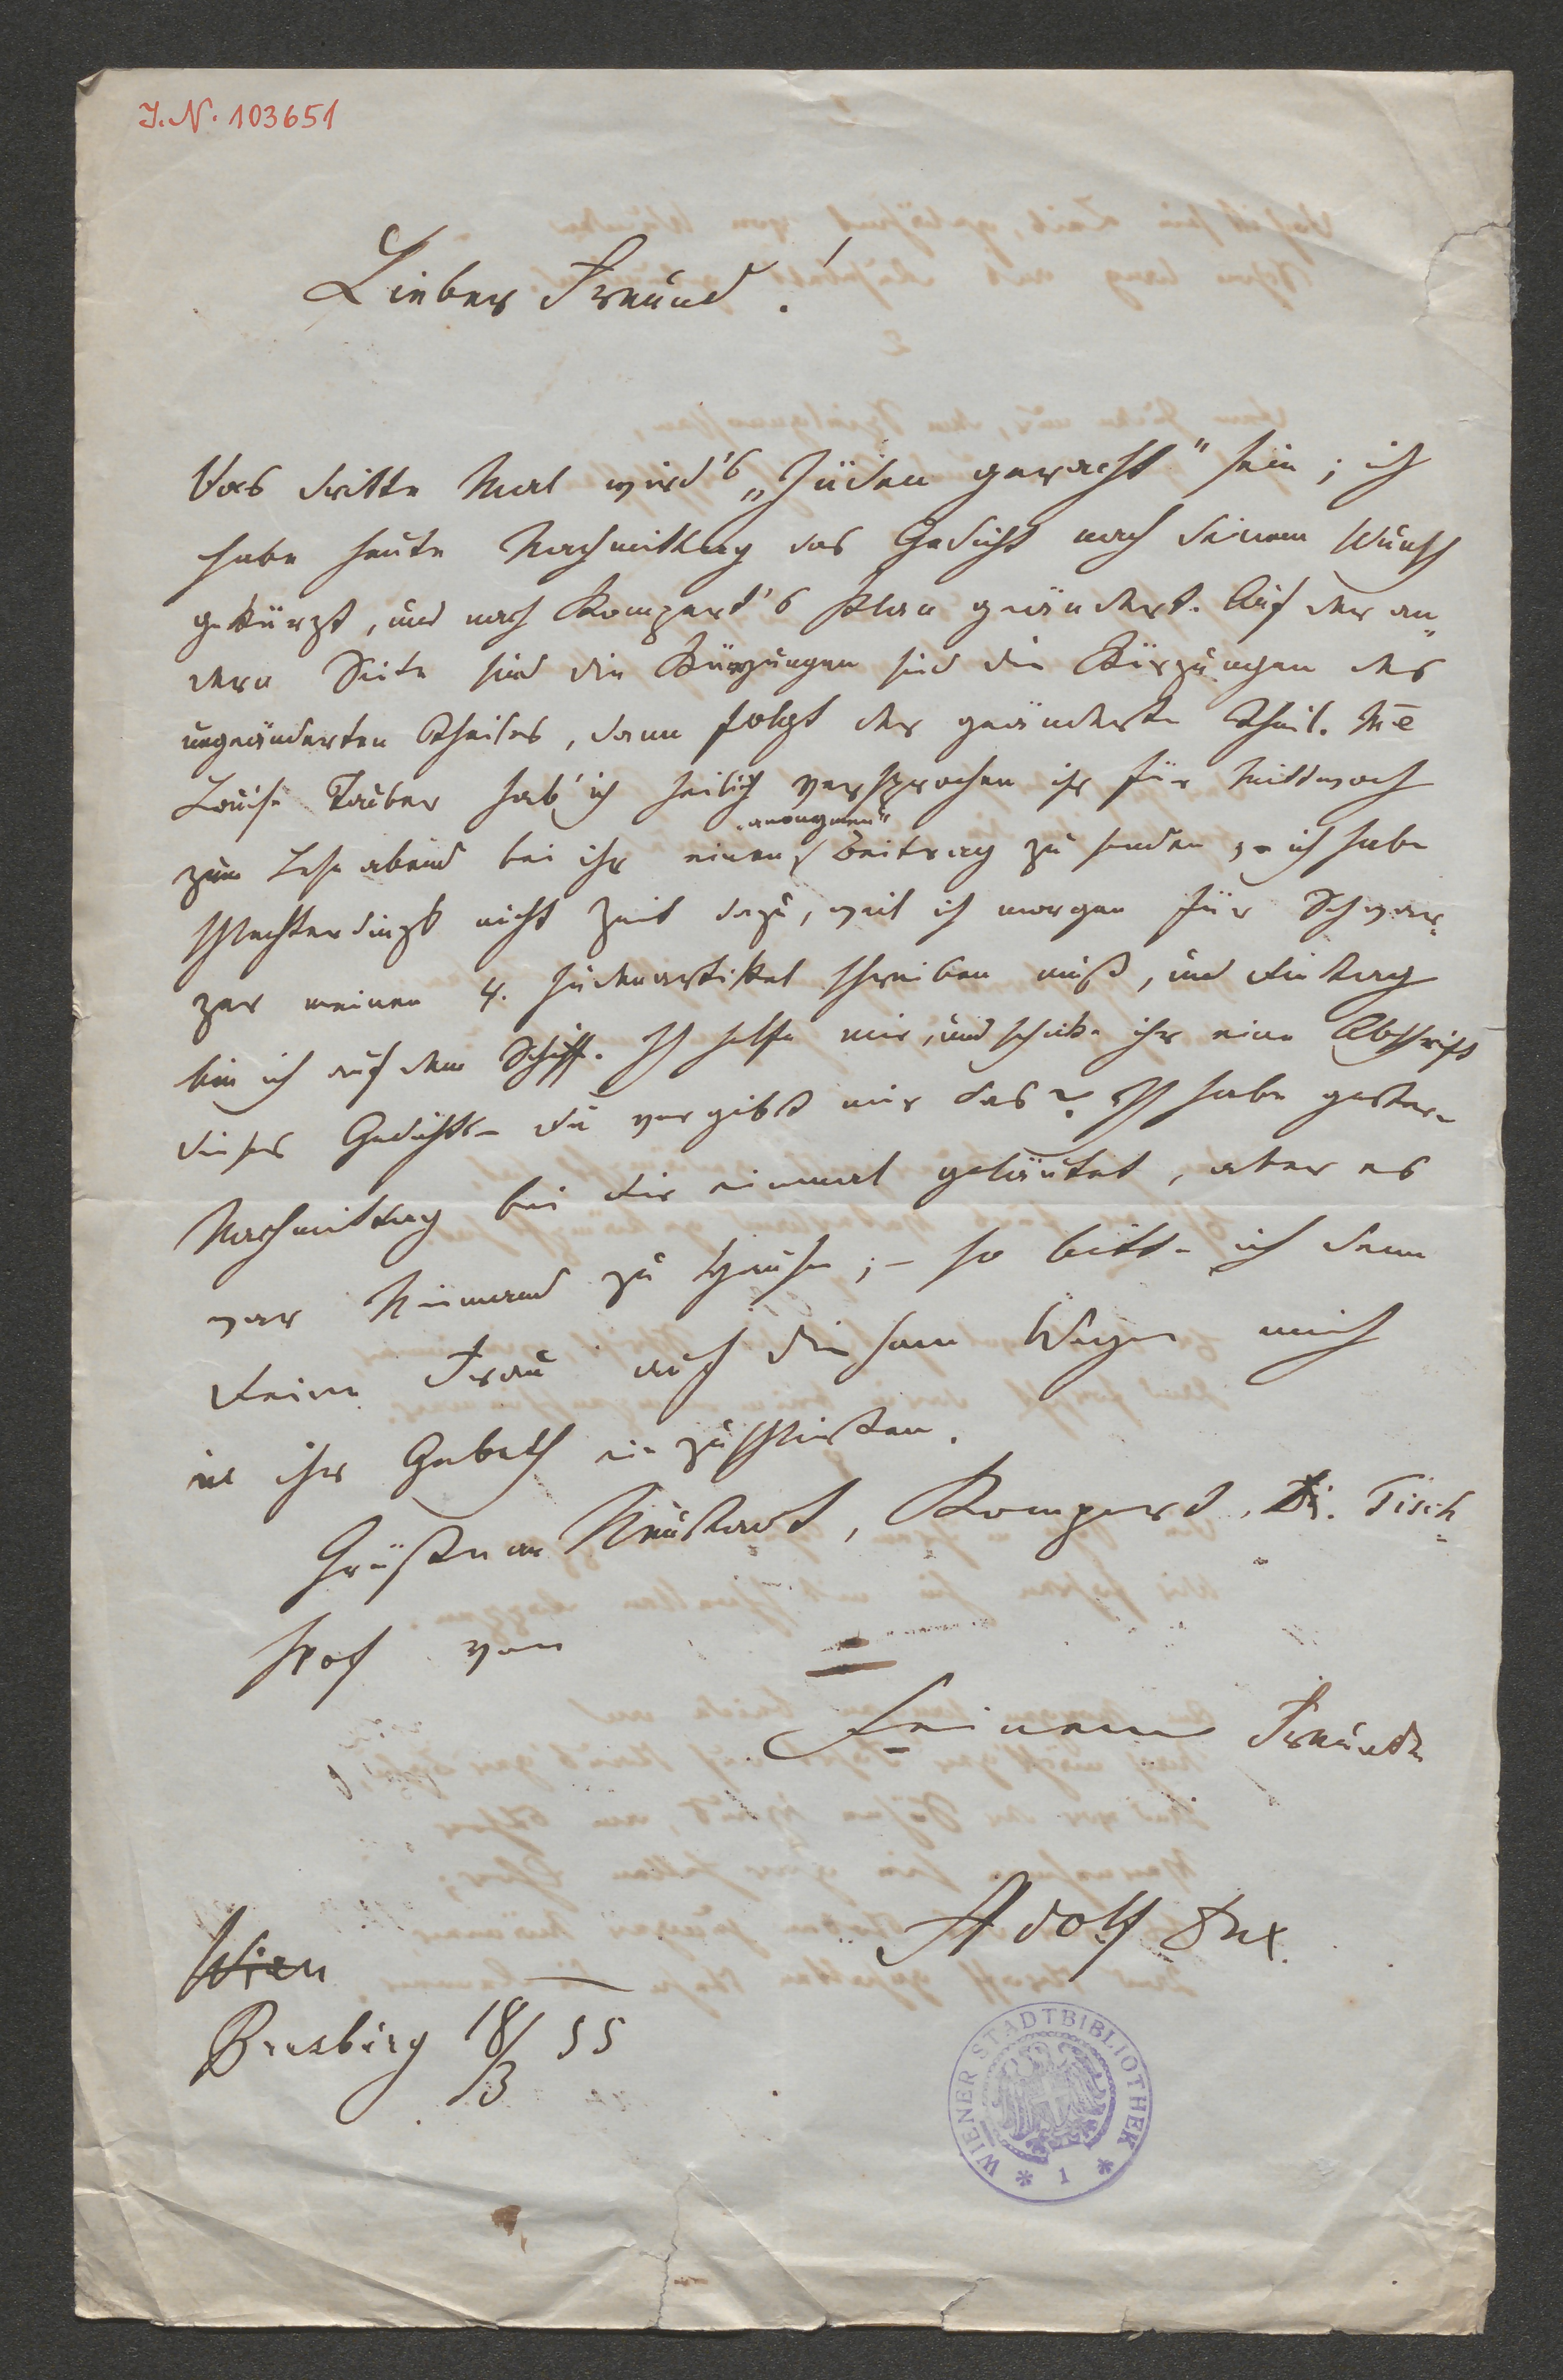 J. N. 103651
Lieber Freund!
Das dritte Mal wird's „Juden gerecht" sein; ich
habe heute Nachmittag das Gedicht nach deinem Wunsch
gekürzt, und nach Kompert's Plan geändert. Auf der an„
dern Seite sind die Kürzungen sind die Kürzungen des
ungeänderten Theiles, dann folgt der geänderte Theil. Me
Louise Tauber hab' ich heilig versprochen ihr für Mittwoch
„anonymen"
zum Leseabend bei ihr einen Beitrag zu senden – ich habe
schlechterdings nicht Zeit dazu, weil ich morgen für Schwar„
zer meinen 4. Judenartikel schreiben muß, und Dinstag
bin ich auf dem Schiff. Ich helfe mir, und schicke ihr eine Abschrift
dieses Gedichts – du vergibst mir das? Ich habe gestern
Nachmittag bei dir einmal geläutet, aber es
war Niemand zu Hause; – so bitte ich denn
deine Frau auf diesem Wege mich
in ihr Gebeth einzuschließen.
Grüße an Neustadt, Kompert, Tisch
hof von
Deinem Freunde
Adolf Dux.
Wien
Presburg 18/3 55
WIENER STADTBIBLIOTHEK
* 1 *